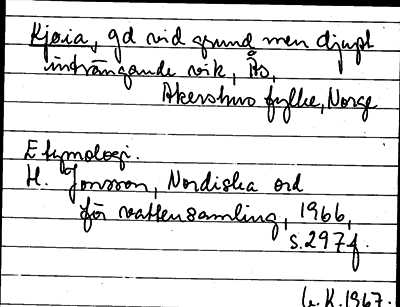 Kjøia, gd vid grund men djupt
inträngande vik, Ås,
Akershus fylke, Norge
Etymologi.
H. Jonsson, Nordiska ord
för vattensamling, 1966,
s. 297 f.
K. 1967.